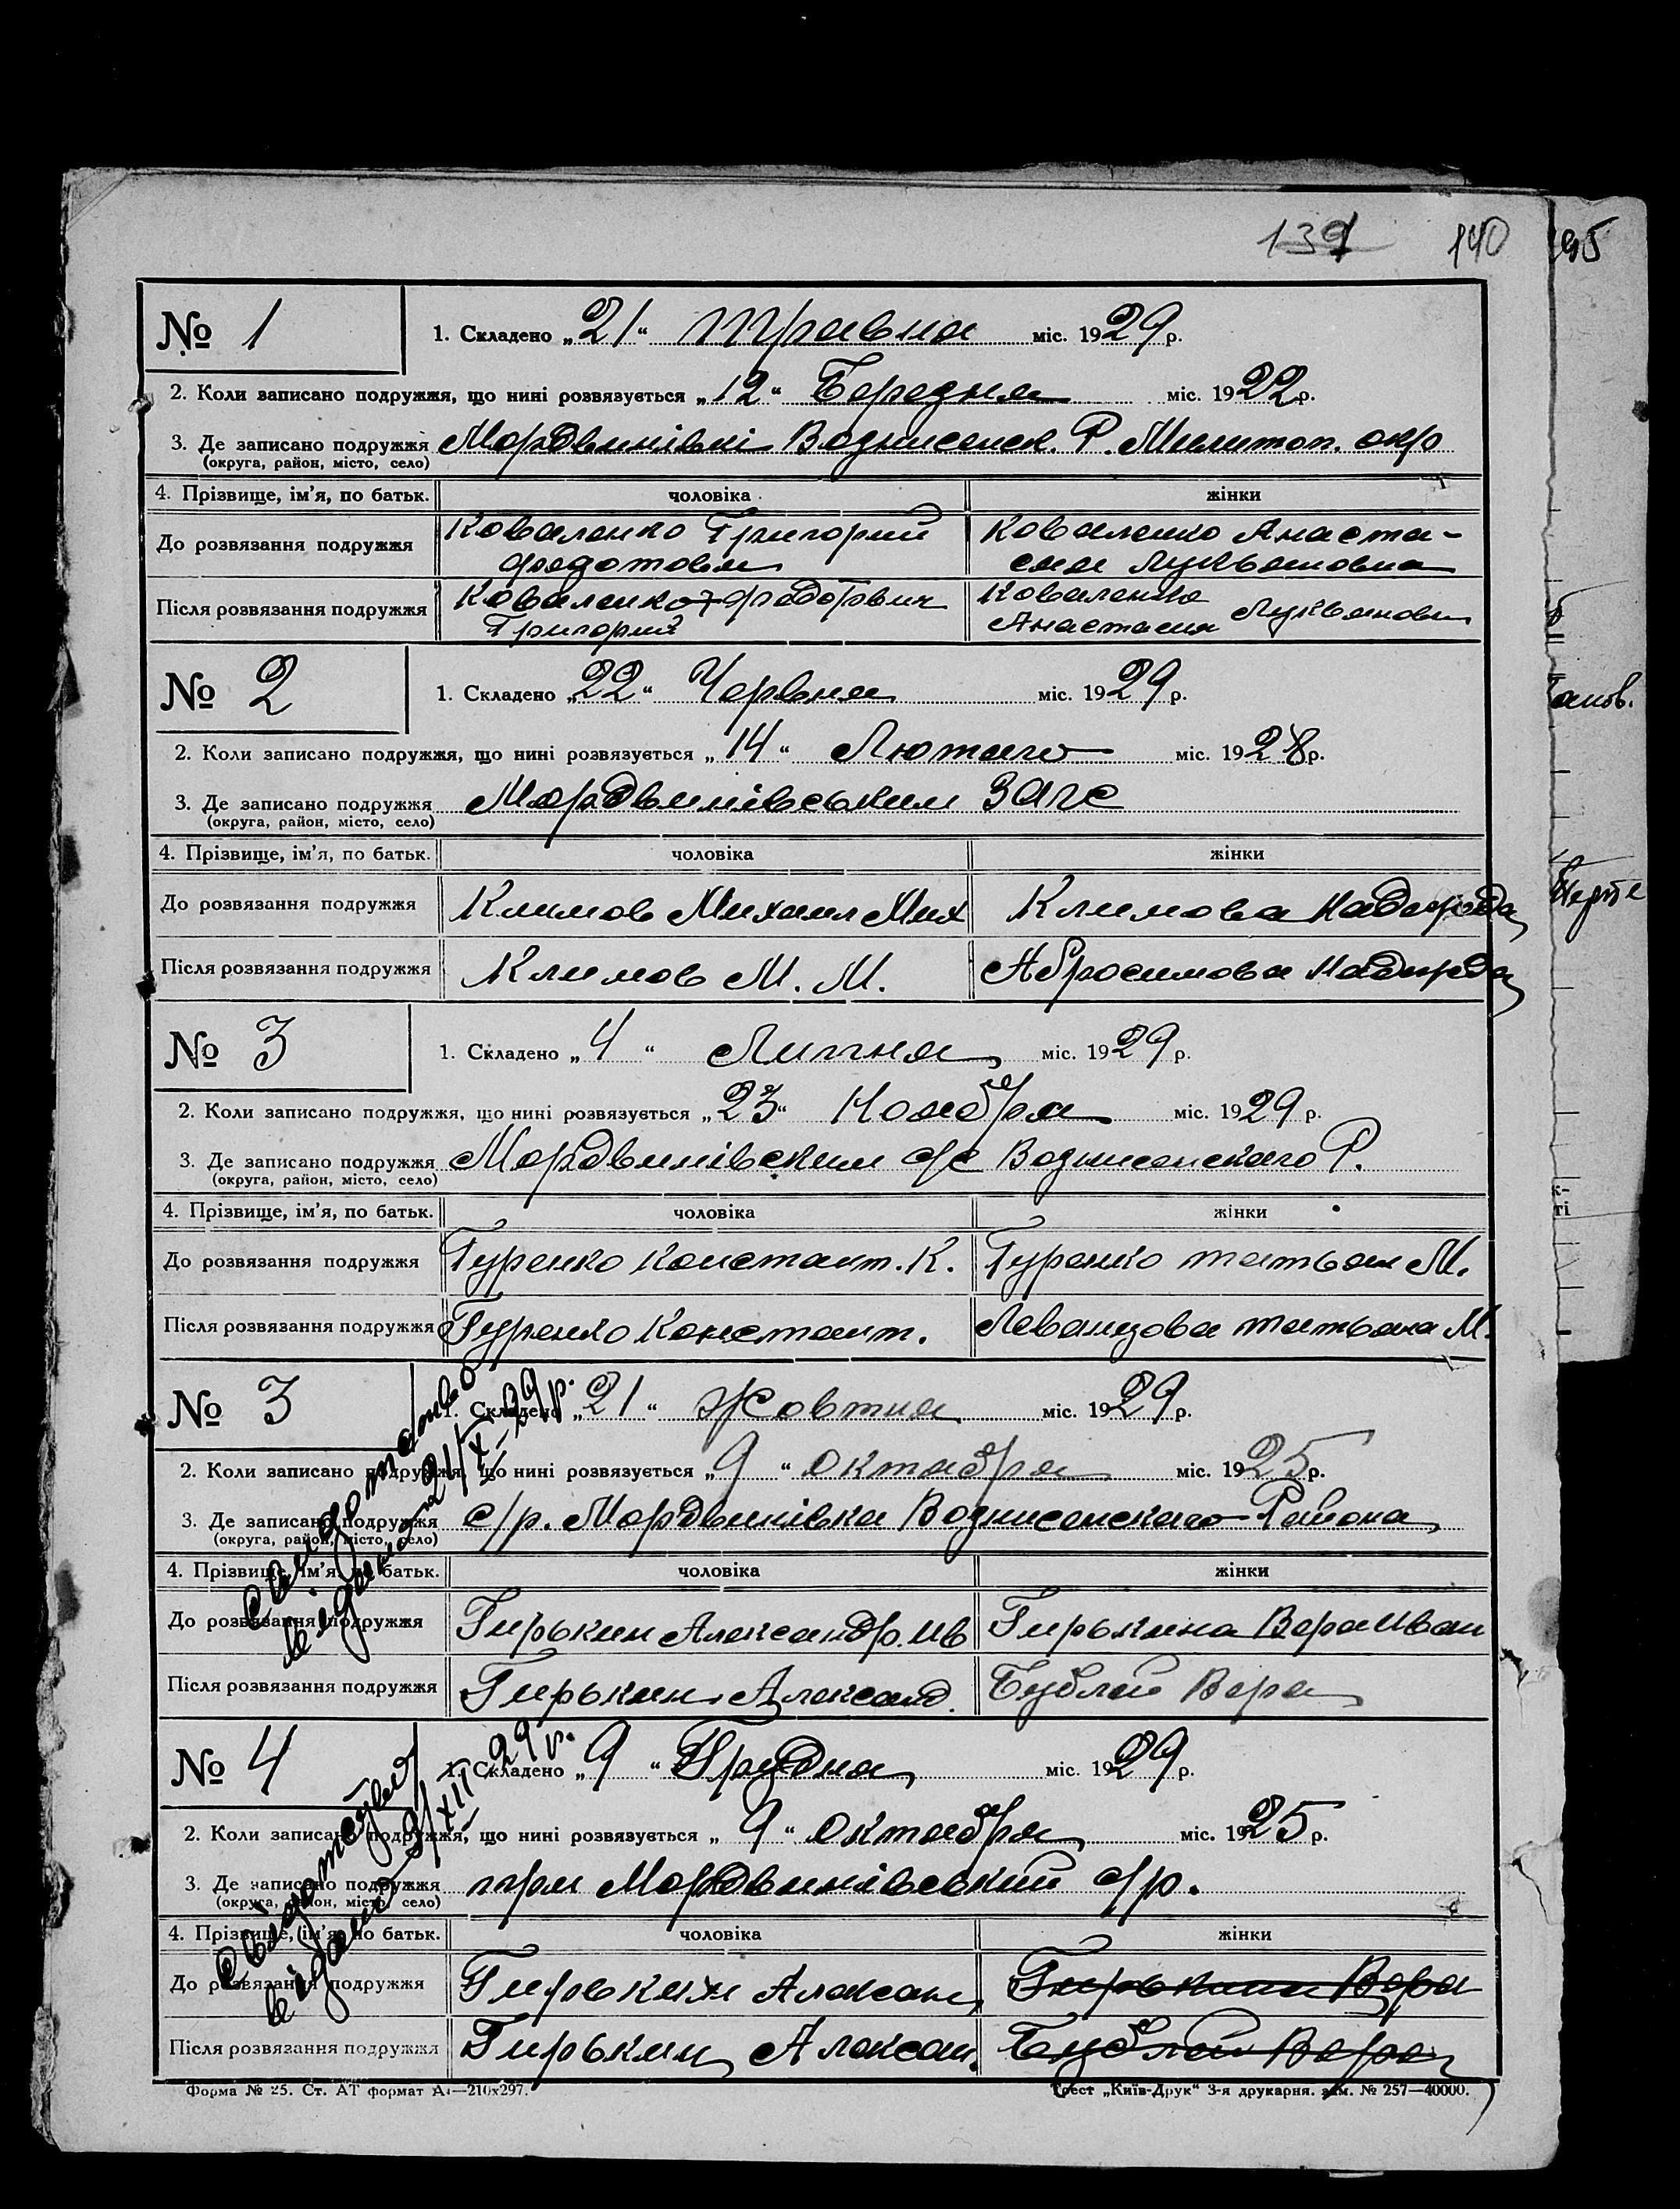 139 140 195
№ 1
1. Складено „21“ Травня міс. 1929 р.
2. Коли записано подружжя, що нині розвязується „12“ Березня міс. 1922 р.
3. Де записано подружжя Мордвинівкі Вознисенск. Р. Милитоп. окр
(округа, район, місто, село)
4. Прізвище, ім’я, по батьк. чоловіка жінки
До розвязання подружжя Коваленко Григорий Коваленко Анаста-
сия Лукъяновна
Після розвязання подружжя Коваленко Коваленко
Григорий Анастасия
№ 2
1. Складено „22“ Червня міс. 1929 р.
2. Коли записано подружжя, що нині розвязується „14“ Лютаго міс. 1928 р.
3. Де записано подружжя Мордвинівським Загс
(округа, район, місто, село)
4. Прізвище, ім’я, по батьк. чоловіка жінки
До розвязання подружжя Климов Михаил Мих Климова Надежда
Після розвязання подружжя Климов М. М. Абросимова Надежда
№ 3
1. Складено „4“ Липня міс. 1929 р.
2. Коли записано подружжя, що нині розвязується „23“ Ноября міс. 1929 р.
3. Де записано подружжя Мордвинівским с/с Вознисенскаго Р.
(округа, район, місто, село)
4. Прізвище, ім’я, по батьк. чоловіка жінки
До розвязання подружжя Гуренко Констант. К. Гуренко Татьян М.
Після розвязання подружжя Гуренко Констант. Татьяна М.
№ 3
1. Складено „21“ Жовтня міс. 1929 р.
2. Коли записано подружжя, що нині розвязується „9“ октября міс. 1925 р.
3. Де записано подружжя с/р. Мордвинівка Вознисенскаго Района
(округа, район, місто, село)
4. Прізвище, ім’я, по батьк. чоловіка жінки
До розвязання подружжя Гирькин Александр. Ив Гирькина Вера Иван
Після розвязання подружжя Гирькин Александ. Бублей Вера
відано 21/X–29 р.
№ 4
1. Складено „9“ Грудня міс. 1929 р.
2. Коли записано подружжя, що нині розвязується „9“ октября міс. 1925 р.
3. Де записано подружжя при Мордвинівський с/р.
(округа, район, місто, село)
4. Прізвище, ім’я, по батьк. чоловіка жінки
До розвязання подружжя Гирькин Алексан. Вера
Після розвязання подружжя Гирькин Алексан. Бублей Вера
відано 9/XII–29 р.
Форма № 25. Ст. АТ формат А4—210х297. Трест „Київ-Друк“ 3-я друкарня. зам. № 257—40000.